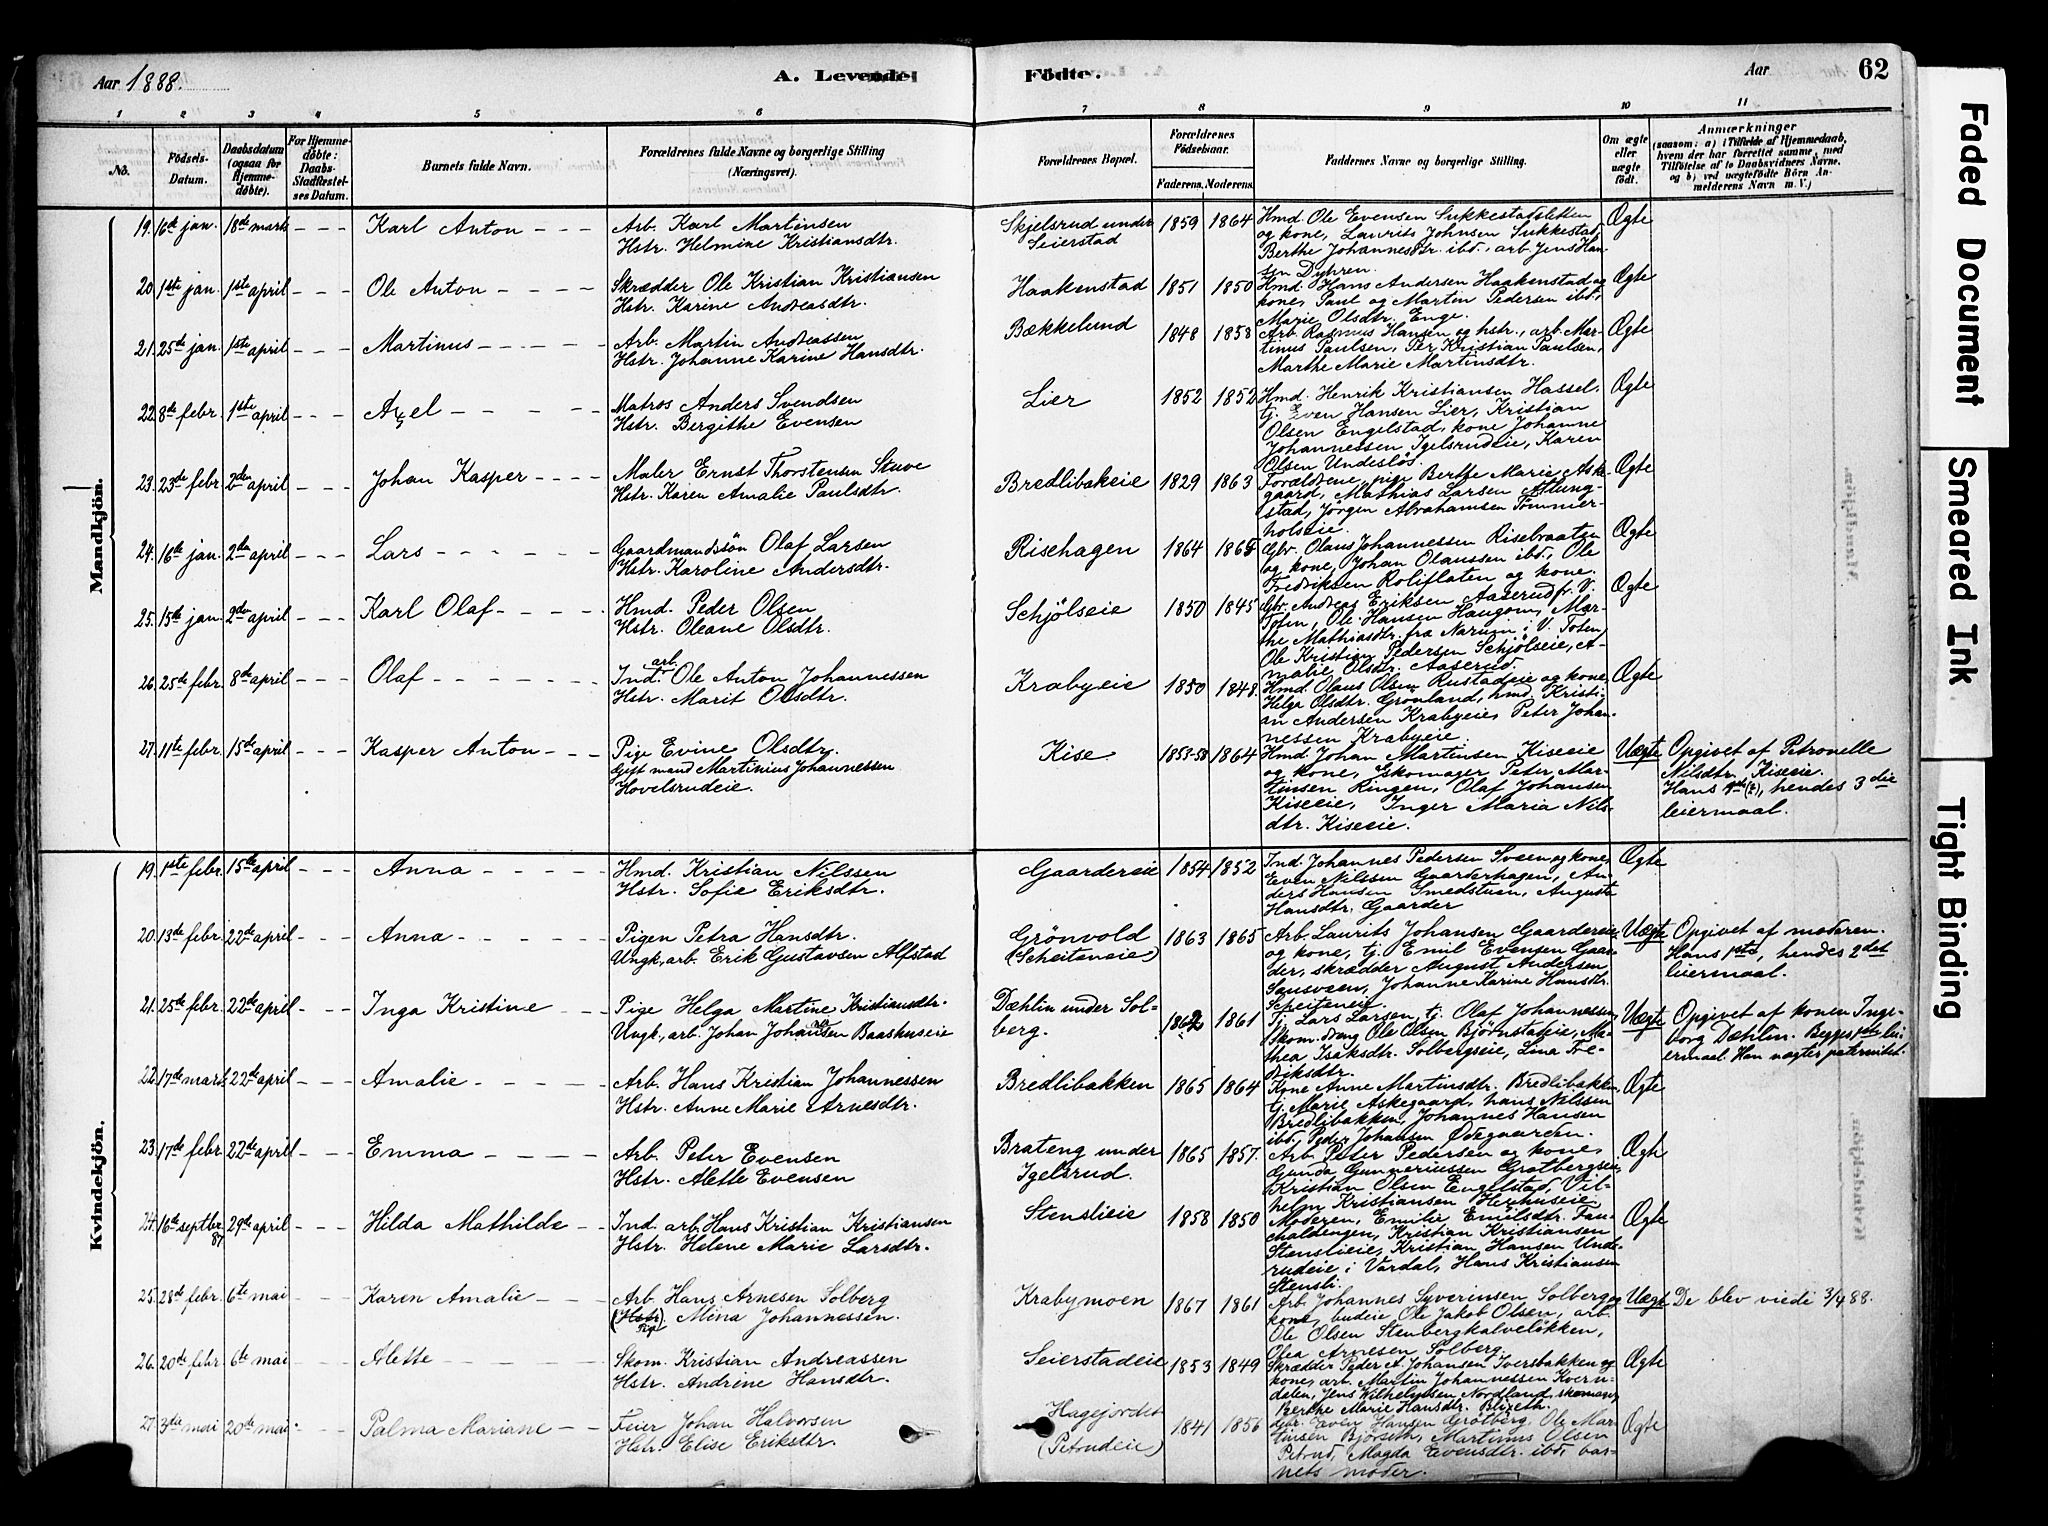 Aar 1888.
A. Levende
Födte.
Aar
62
1 2 3 4 5 6 7 8 9 10 11
No.
Födsels-Datum.
Daabsdatum (ogsaa for Hjemmedöbte).
For Hjemmedöbte: Daabs-Stadfæstelses Datum.
Barnets fulde Navn.
Forældrenes fulde Navne og borgerlige Stilling (Næringsvei).
Forældrenes Bopæl.
Forældrenes Födselsaar.
Faderens. Moderens.
Faddernes Navne og borgerlige Stilling.
Om ægte eller uægte födt.
Anmærkninger
(saasom: a) i Tilfælde af Hjemmedaab, hvem der har forrettet samme, med Tilföielse af to Daabsvidners Navne, og b) ved uægtefödte Börn Anmelderens Navn m. V.)
Mandkjön.
19. 16de jan. 18de marts - - - Karl Anton - - - Arb. Karl Martinsen
Hstr. Helmine Kristiansdtr.
Skjelsrud under Seierstad 1859 1864
Hmd. Ole Evensen Sukkestadsletten
og kone, Laurits Johnsen Sukkestad,
Berthe Johannesdtr. ibd., arb. Jens Han-
sen Dyhren. Ægte
20. 1ste jan. 1ste april - - - Ole Anton - - - - Skrædder Ole Kristian Kristiansen
Hstr. Karine Andreasdtr.
Haakenstad 1851 1850
Hmd. Hans Andersen Haakenstad og
kone, Paul og Martin Pedersen ibd.,
Marie Olsdtr. Enge. Ægte
21. 25de jan. 1ste april - - - Martinus - - - - - Arb. Martin Andreassen
Hstr. Johanne Karine Hansdtr.
Bækkelund 1848 1858
Arb. Rasmus Hansen og hstr., arb. Mar-
tinus Paulsen, Per Kristian Paulsen,
Marthe Marie Martinsdtr. Ægte
22. 8de febr. 1ste april - - - Axel - - - - - Matros Anders Svendsen
Hstr. Bergithe Evensen
Lier 1852 1852
Hmd. Henrik Kristiansen Hassel,
tj. Even Hansen Lier, Kristian
Olsen Engelstad, kone Johanne
Johannessen Igelsrudeie, Karen
Olsen Undeslös. Ægte
23. 23de febr. 2den april - - - Johan Kasper - - - - Maler Ernst Thorstensen Stuve
Hstr. Karen Amalie Paulsdtr.
Bredlibakeie 1829 1863
Forældrene, pige Berthe Marie Aske-
gaard, Mathias Larsen Allung-
stad, Jörgen Abrahamsen Tömmer-
holseie. Ægte
24. 16de jan. 2den april - - - Lars - - - - - Gaardmandssön Olaf Larsen
Hstr. Karoline Andersdtr.
Risehagen 1864 1865
Gbr. Olaus Johannessen Risebraaten
og kone, Johan Olaussen ibd., Ole
Fredriksen Roliflaten og kone. Ægte
25. 15de jan. 2den april - - - Karl Olaf - - - - Hmd. Peder Olsen
Hstr. Oleane Olsdtr.
Schjölseie 1850 1845
Gbr. Andreas Eriksen Aaserud fr. V.
Toten, Ole Hansen Haugom, Mar-
the Mathiasdtr. fra Narum i V. Toten,
Ole Kristian Pedersen Schjölseie, A-
malie Olsdtr. Aaserud. Ægte
26. 25de febr. 8de april - - - Olaf - - - - - - Ind. arb. Ole Anton Johannessen
Hstr. Marit Olsdtr.
Krabyeie 1850 1848.
Hmd. Olaus Olsen Rustadeie og kone,
Helga Olsdtr. Grönland, hmd. Kristi-
an Andersen Krabyeie, Peter Johan-
nessen Krabyeie. Ægte
27. 11te febr. 15de april - - - Kasper Anton - - - Pige Evine Olsdtr.
Gift mand Martinius Johannessen
Hovelsrudeie.
Kise. 1853-58 1864
Hmd. Johan Martinsen Kiseeie
og kone, skomager Peter Mar-
tinsen Ringen, Olaf Johansen
Kiseeie, Inger Maria Nils-
dtr. Kiseeie. Uægte
Opgivet af Petronelle
Nilsdtr. Kiseeie.
Hans 4de(?), hendes 3die
leiermaal.
Kvindekjön.
19. 1ste febr. 15de april - - - Anna - - - - - Hmd. Kristian Nilssen
Hstr. Sofie Eriksdtr.
Gaardereie 1854 1852
Ind. Johannes Pedersen Sveen og kone,
Even Nilssen Gaarderhagen, An-
ders Hansen Smedstuen, Auguste
Hansdtr. Gaarder Ægte
20. 13de febr. 22de april - - - Anna - - - - - Pigen Petra Hansdtr.
Ungk., arb. Erik Gustavsen Alfstad
Grönvold
(Scheiteneie) 1863 1865
Arb. Laurits Johansen Gaardereie
og kone, tj. Emil Evensen Gaar-
der, skrædder August Andersen
Sansveen, Johanne Karine Hansdtr.
Scheiteneie. Uægte
Opgivet af moderen.
Hans 1ste, hendes 2det
leiermaal.
21. 25de febr. 22de april - - - Inga Kristine - - - Pige Helga Martine Kristiansdtr.
Ungk., arb. Johan Johannessen Baashuseie
Dæhlin under Sol-
berg. 1862 1861
Tj. Lars Larsen, tj. Olaf Johannessen,
Skom.dreng Ole Olsen Björnstadeie, Ma-
thea Isaksdtr. Solbergseie, Lina Fre-
driksdtr. Uægte
Opgivet af konen Inge-
borg Dæhlin. Begges 1ste lei-
ermaal. Han nægter paternitet.
22. 17de mars. 22de april - - - Amalie - - - - Arb. Hans Kristian Johannessen
Hstr. Anne Marie Arnesdtr.
Bredlibakken 1865 1864
Kone Anne Martinsdtr. Bredlibakken,
tj. Marie Askegaard, hans Nilssen
Bredlibakken, Johannes Hansen
ibd., Peder Johansen Ödegaarden. Ægte
23. 17de febr. 22de april - - - Emma - - - - Arb. Peter Evensen
Hstr. Alette Evensen
Brateng under
Igelsrud. 1865 1857.
Arb. Peter Pedersen og kone,
Gunda Gunneriussen Grotbergseie,
Kristian Olsen Engelstad, Vil-
helm Kristiansen Herhuseie. Ægte
24. 16de septbr. 87 29de april - - - Hilda Mathilde - - Ind. arb. Hans Kristian Kristiansen
Hstr. Helene Marie Larsdtr.
Stenslieie 1858 1850
Moderen, Emilie Emilsdtr. Fau-
chaldengen, Kristian Kristiansen
Stenslieie, Kristian Hansen Unde-
rudeie i Vardal, Hans Kristiansen
Stensli. Ægte
25. 28de febr. 6te mai - - - Karen Amalie - - - Arb. Hans Arnesen Solberg
(Hstr.) Pige Mina Johannessen.
Krabymoen 1867 1861
Arb. Johannes Syverinsen Solberg og
kone, budeie Ole Jakob Olsen, arb.
Ole Olsen Stenbergkalvelökken,
Olea Arnesen Solberg. Uægt
De blev viede 3/4 88.
26. 20de febr. 6te mai - - - Alette - - - - - Skom. Kristian Andreassen
Hstr. Andrine Hansdtr.
Seierstadeie 1853 1849
Skrædder Peder A. Johansen Iversbakken og
kone, arb. Martin Johannessen Kvern-
dalen, Jens Wilhelmsen Nordland, skomager,
Berthe Marie Hansdtr. Blixeth. Ægte
27. 3die mai 20de mai - - - Palma Mariane - - Feier Johan Halvorsen
Hstr. Elise Eriksdtr.
Hagejordet
(Petrudeie) 1841 1856
Gbr. Even Hansen Grötberg, Ole Mar-
tinsen Björseth, Martinus Olsen
Petrud, Magda Evensdtr. ibd., bar-
nets moder. Ægte
Faded Document
Smeared Ink
Tight Binding